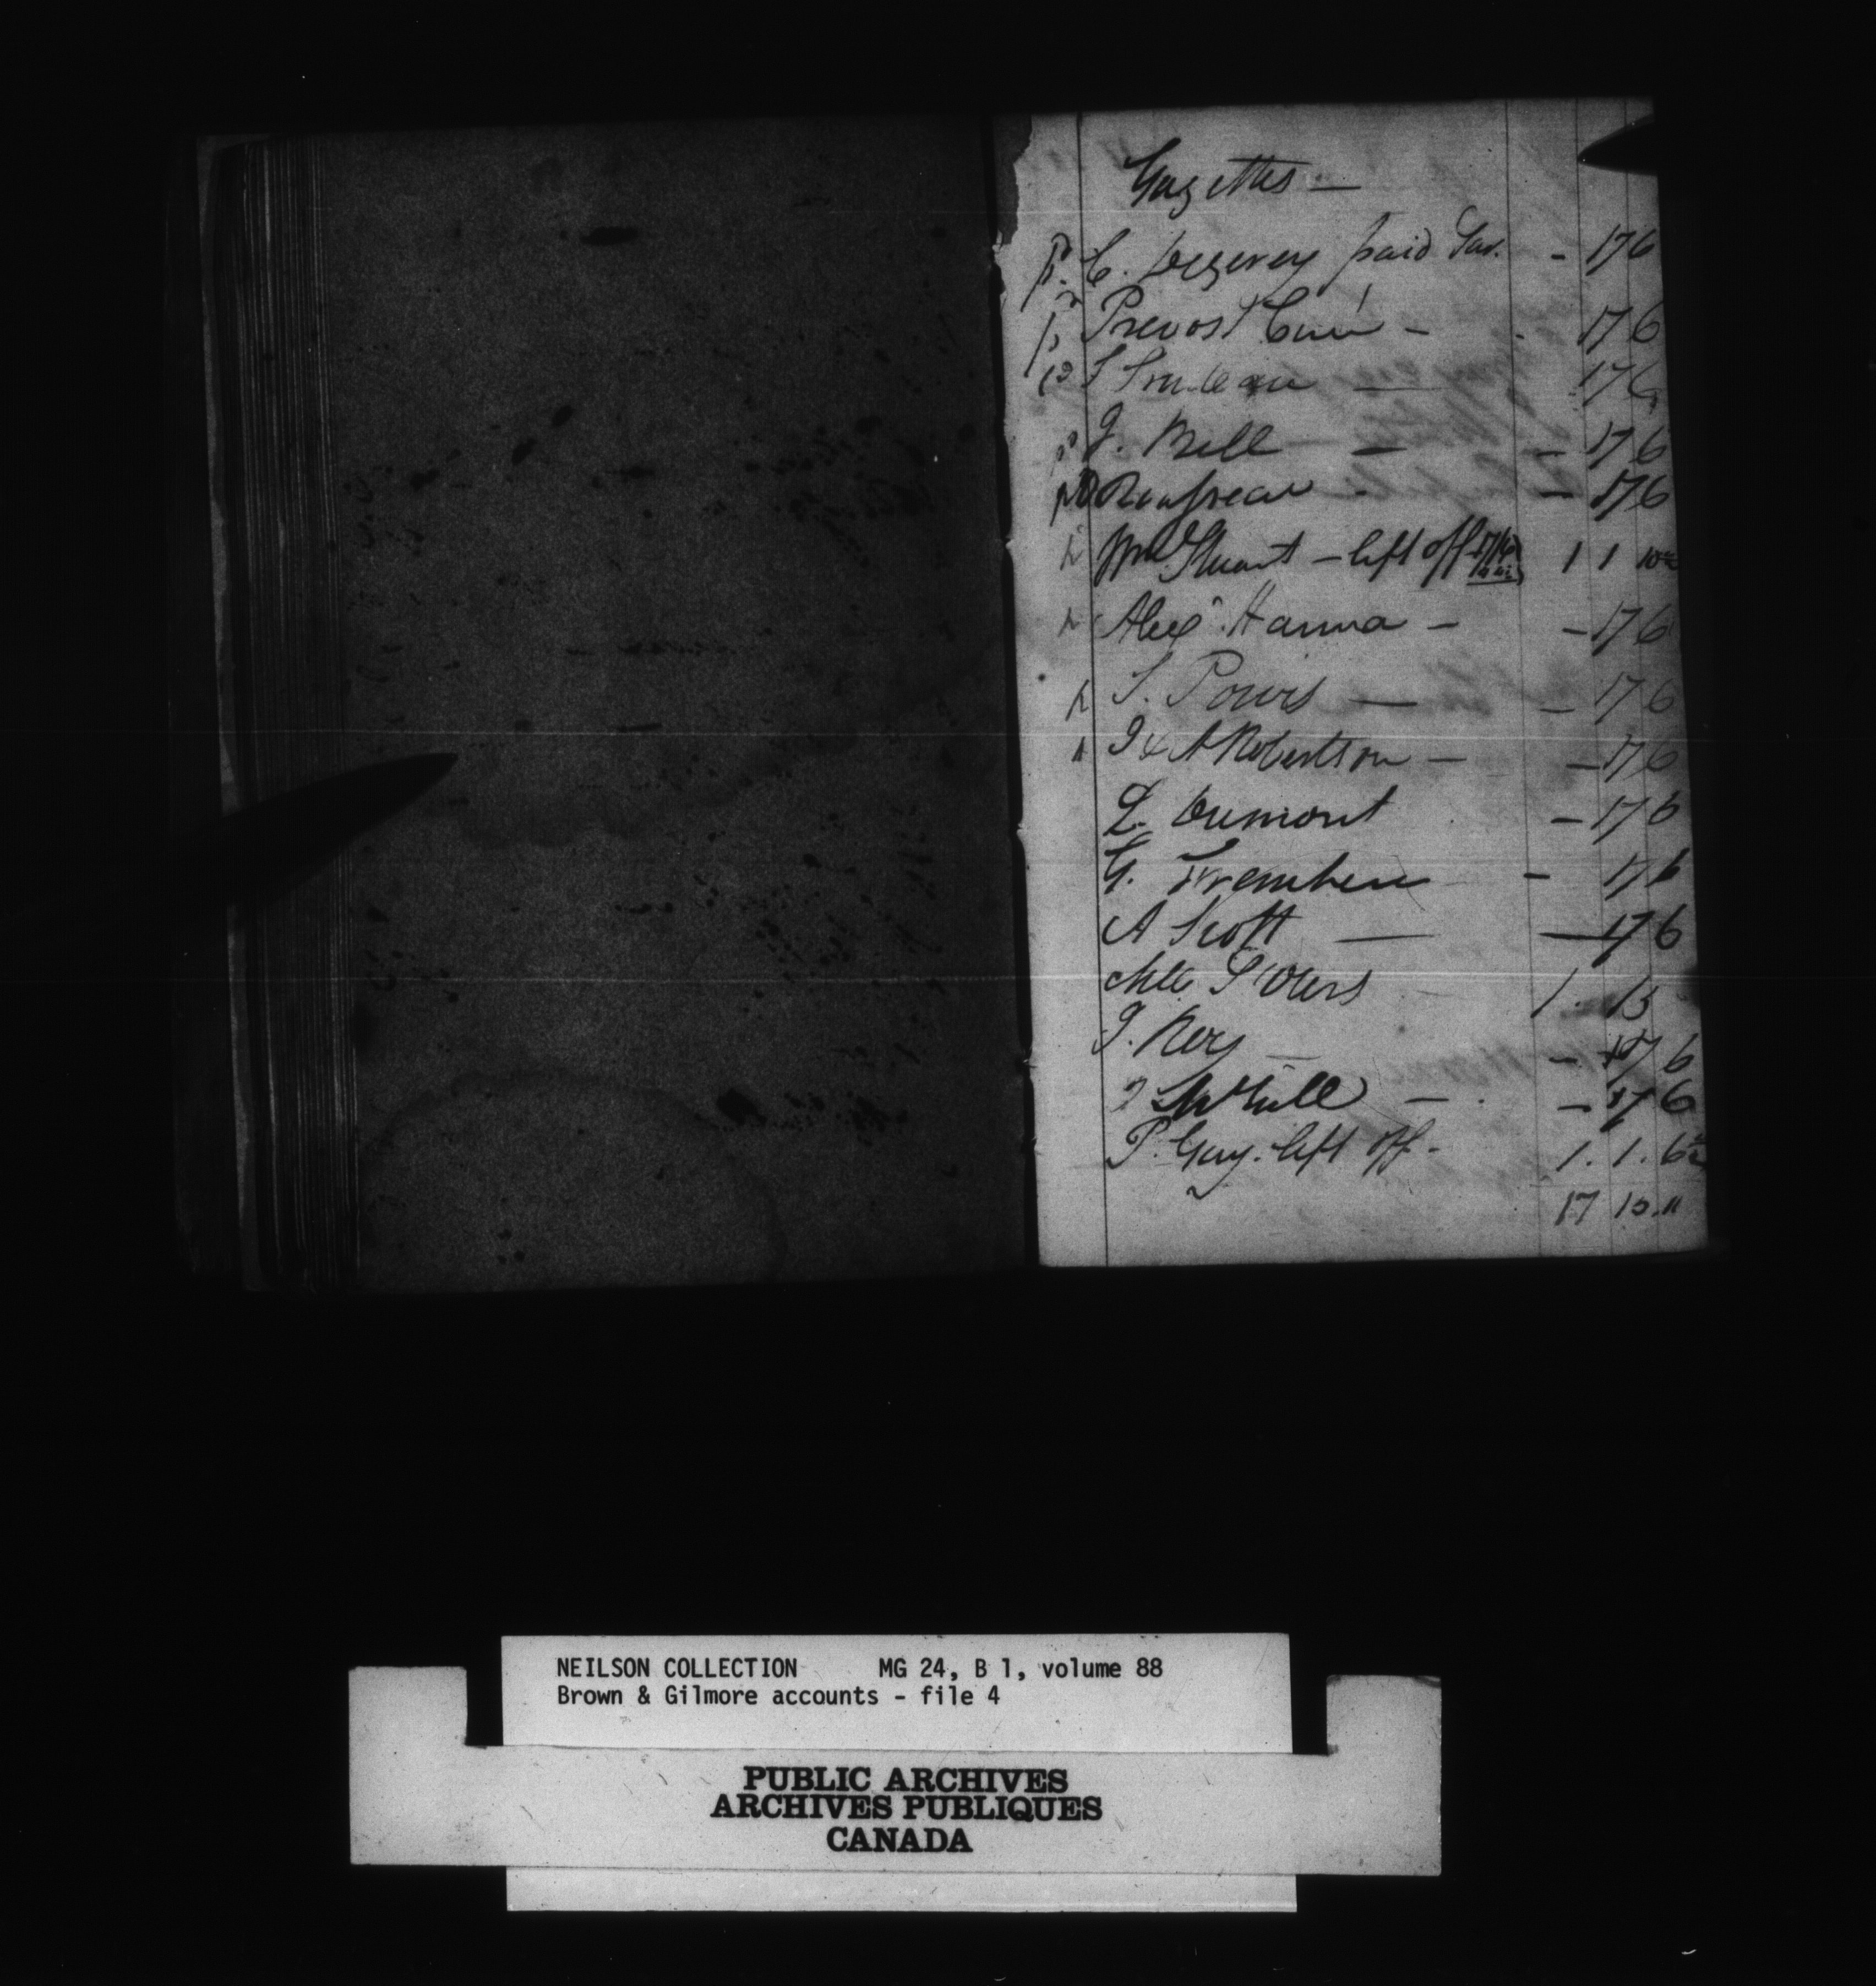 Gazettes —
p. C. Dezerey paid Gav. - 17 6
p Prevost Curé - 17 6
p Trudeau — 17 6
p J. Bell — - 17 6
pd - 17 6
Wm Stuart - left off 1 1
Alex. Hanna - - 17 6
p S. Powis — - 17 6
J & A Robertson - - 17 6
L. Dumont - 17 6
G. - 17 6
A Scott — — 17 6
1. 15
J. Roy — - 17 6
McGill — - 17 6
P. Guy. left off - 1. 1. 6
17 15. 11
NEILSON COLLECTION MG 24, B 1, volume 88
Brown & Gilmore accounts - file 4
PUBLIC ARCHIVES
ARCHIVES PUBLIQUES
CANADA